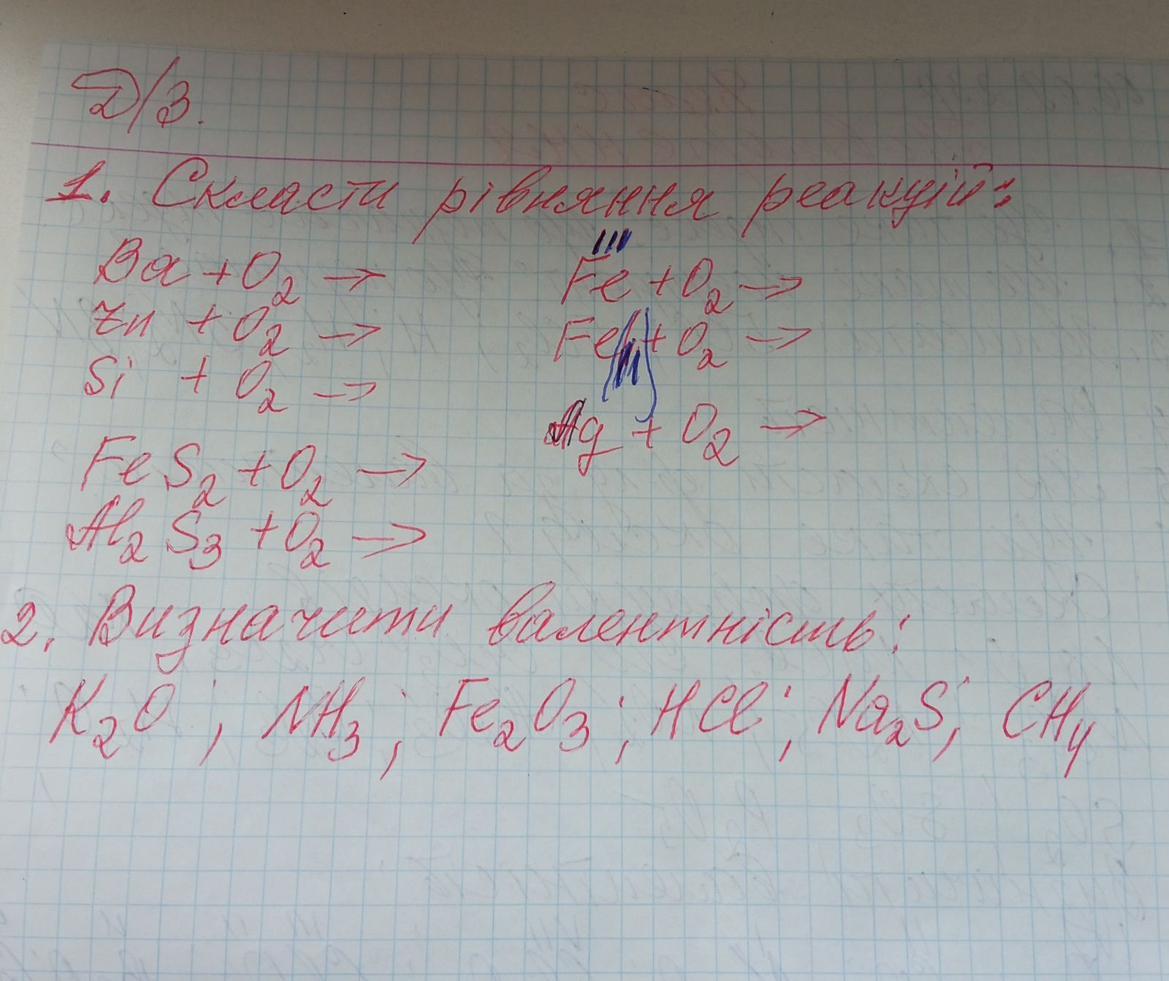 Д/З.
1. Скласти рівняння реакцій:
Ba + O₂ →
Zn + O₂ →
Si + O₂ →
FeS₂ + O₂ →
Al₂S₃ + O₂ →
III
Fe + O₂ →
Fe + O₂ →
Ag + O₂ →
2. Визначити валентність:
K₂O ; NH₃ ; Fe₂O₃ ; HCl ; Na₂S ; CH₄